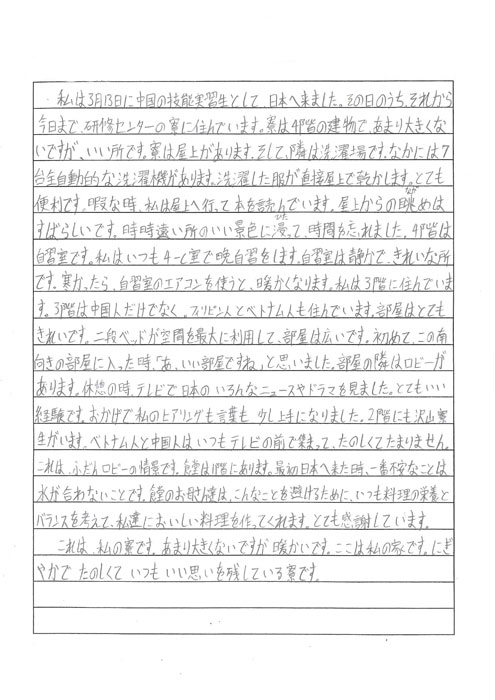 私は3月13日に中国の技能実習生として、日本へ来ました。その日のうち、それから
今日まで、研修センターの寮に住んでいます。寮は4階の建物で、あまり大きくな
いですが、いい所です。寮は屋上があります。そして、隣は洗濯場です。なかには7
台全自動的な洗濯機があります。洗濯した服が直接屋上で乾かします。とても
便利です。暇な時、私は屋上へ行って本を読んでいます。屋上からの眺めは
すばらしいです。時時遠い所のいい景色に浸って、時間を忘れました。4階は
自習室です。私はいつも4-C室で晩自習をします。自習室は静かで、きれいな所
です。寒かったら、自習室のエアコンを使うと、暖かくなります。私は3階に住んでいま
す。3階は中国人だけでなく。フィリピン人とベトナム人も住んでいます。部屋はとても
きれいです。二段ベッドが空間を最大に利用して、部屋は広いです。初めて、この南
向きの部屋に入った時、「あ、いい部屋ですね」と思いました。部屋の隣はロビーが
あります。休憩の時、テレビで日本のいろんなニュースやドラマを見ました。とてもいい
経験です。おかげで私のヒアリングも言葉も少し上手になりました。2階にも沢山寮
生がいます。ベトナム人と中国人はいつもテレビの前で集まって、たのしくてたまりません。
これは、ふだんロビーの情景です。食堂は1階にあります。最初日本へ来た時、一番不安なことは
水が合わないことです。食堂のお母さん達は、こんなことを避けるために、いつも料理の栄養と
バランスを考えて、私達においしい料理を作ってくれます。とても感謝しています。
これは、私の寮です。あまり大きくないですが暖かいです。ここは私の家です。にぎ
やかでたのしくていつもいい思いを残している寮です。